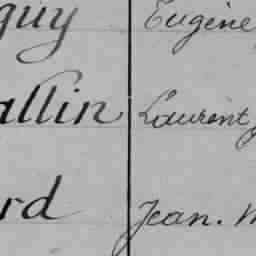 guy Eugène
allin Laurent
rd Jean. M